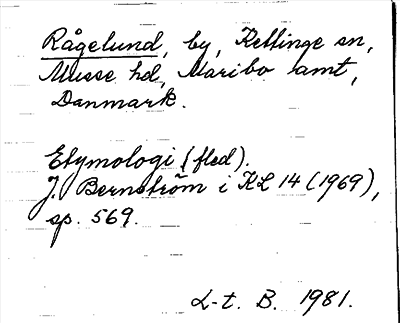 Rågelund, by, Kettinge sn,
Musse hd, Maribo amt,
Danmark.
Etymologi (fled).
J. Bernström i KL 14 (1969),
sp. 569.
L-t. B. 1981.